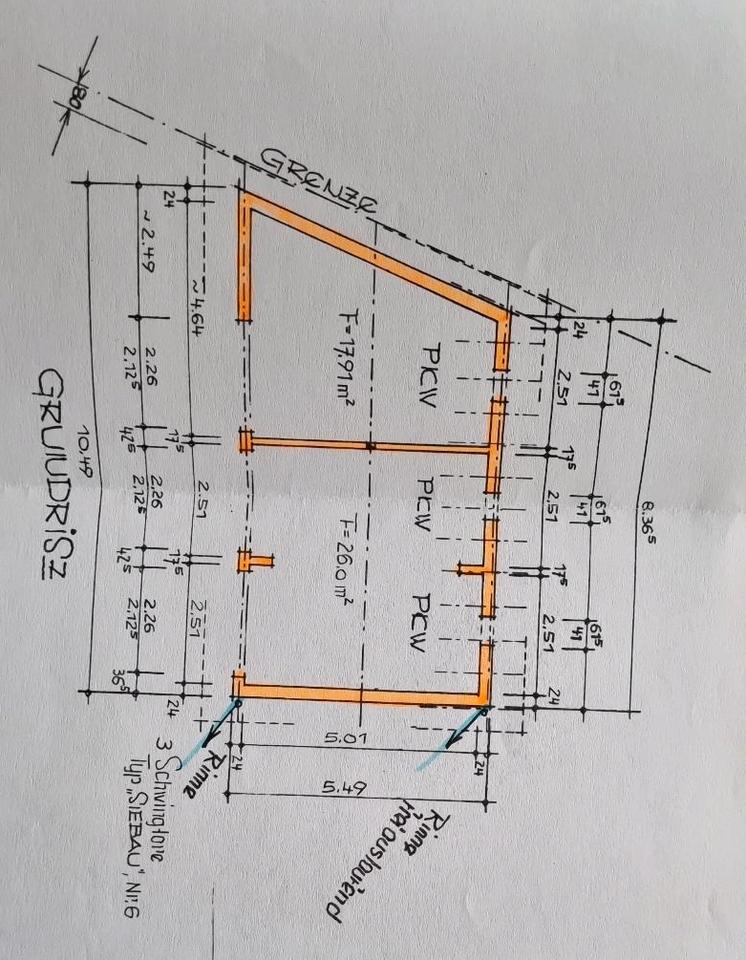 GRENZE
80
24
~ 2.49
~ 4.64
2.26
2.12⁵
42⁵
17⁵
2.26
2.12⁵
2.51
42⁵
17⁵
2.26
2.12⁵
2.51
36⁵
24
10.49
GRUNDRISZ
F=17,91 m²
F=26,0 m²
PKW
PKW
PKW
24
2.51
41
61⁵
17⁵
2.51
41
61⁵
17⁵
2.51
41
61⁵
24
8.36⁵
5.01
24
24
5.49
Rinne
Rinne
freiauslaufend
3 Schwingtore
Typ „SIEBAU", Nr. 6